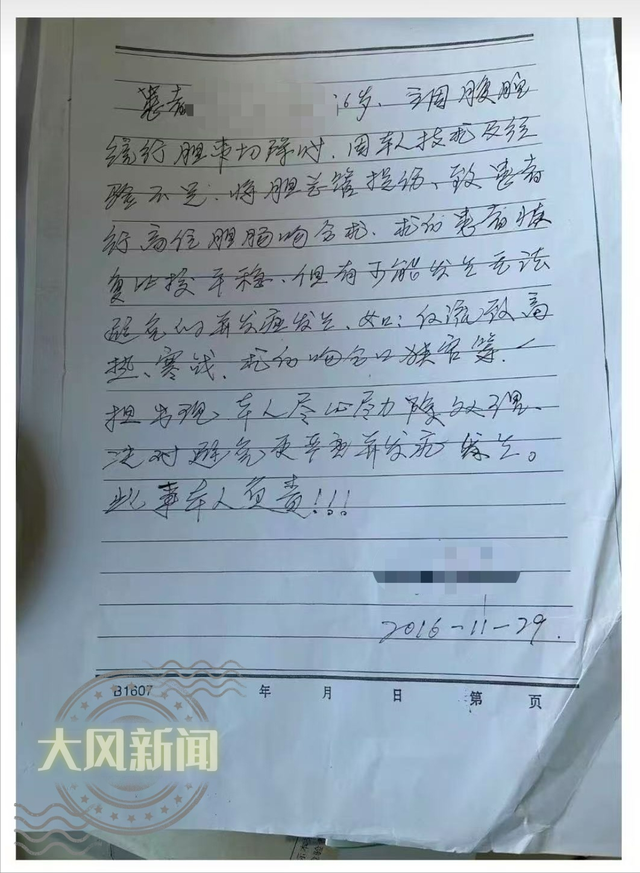 患者 16岁、主因腹腔
镜行胆囊切除时、因本人技术及经
验不足、将胆总管损伤、致患者
行高位胆肠吻合术、术后患者恢
复比较平稳、但有可能发生无法
避免的并发症发生、如：反流致高
热、寒战、术后吻合口狭窄等、一
担出现、本人尽心尽力 处理、
绝对避免更严重并发症发生。
此事本人负责！！！
2016-11-29.
B1607 年 月 日 第 页
大风新闻